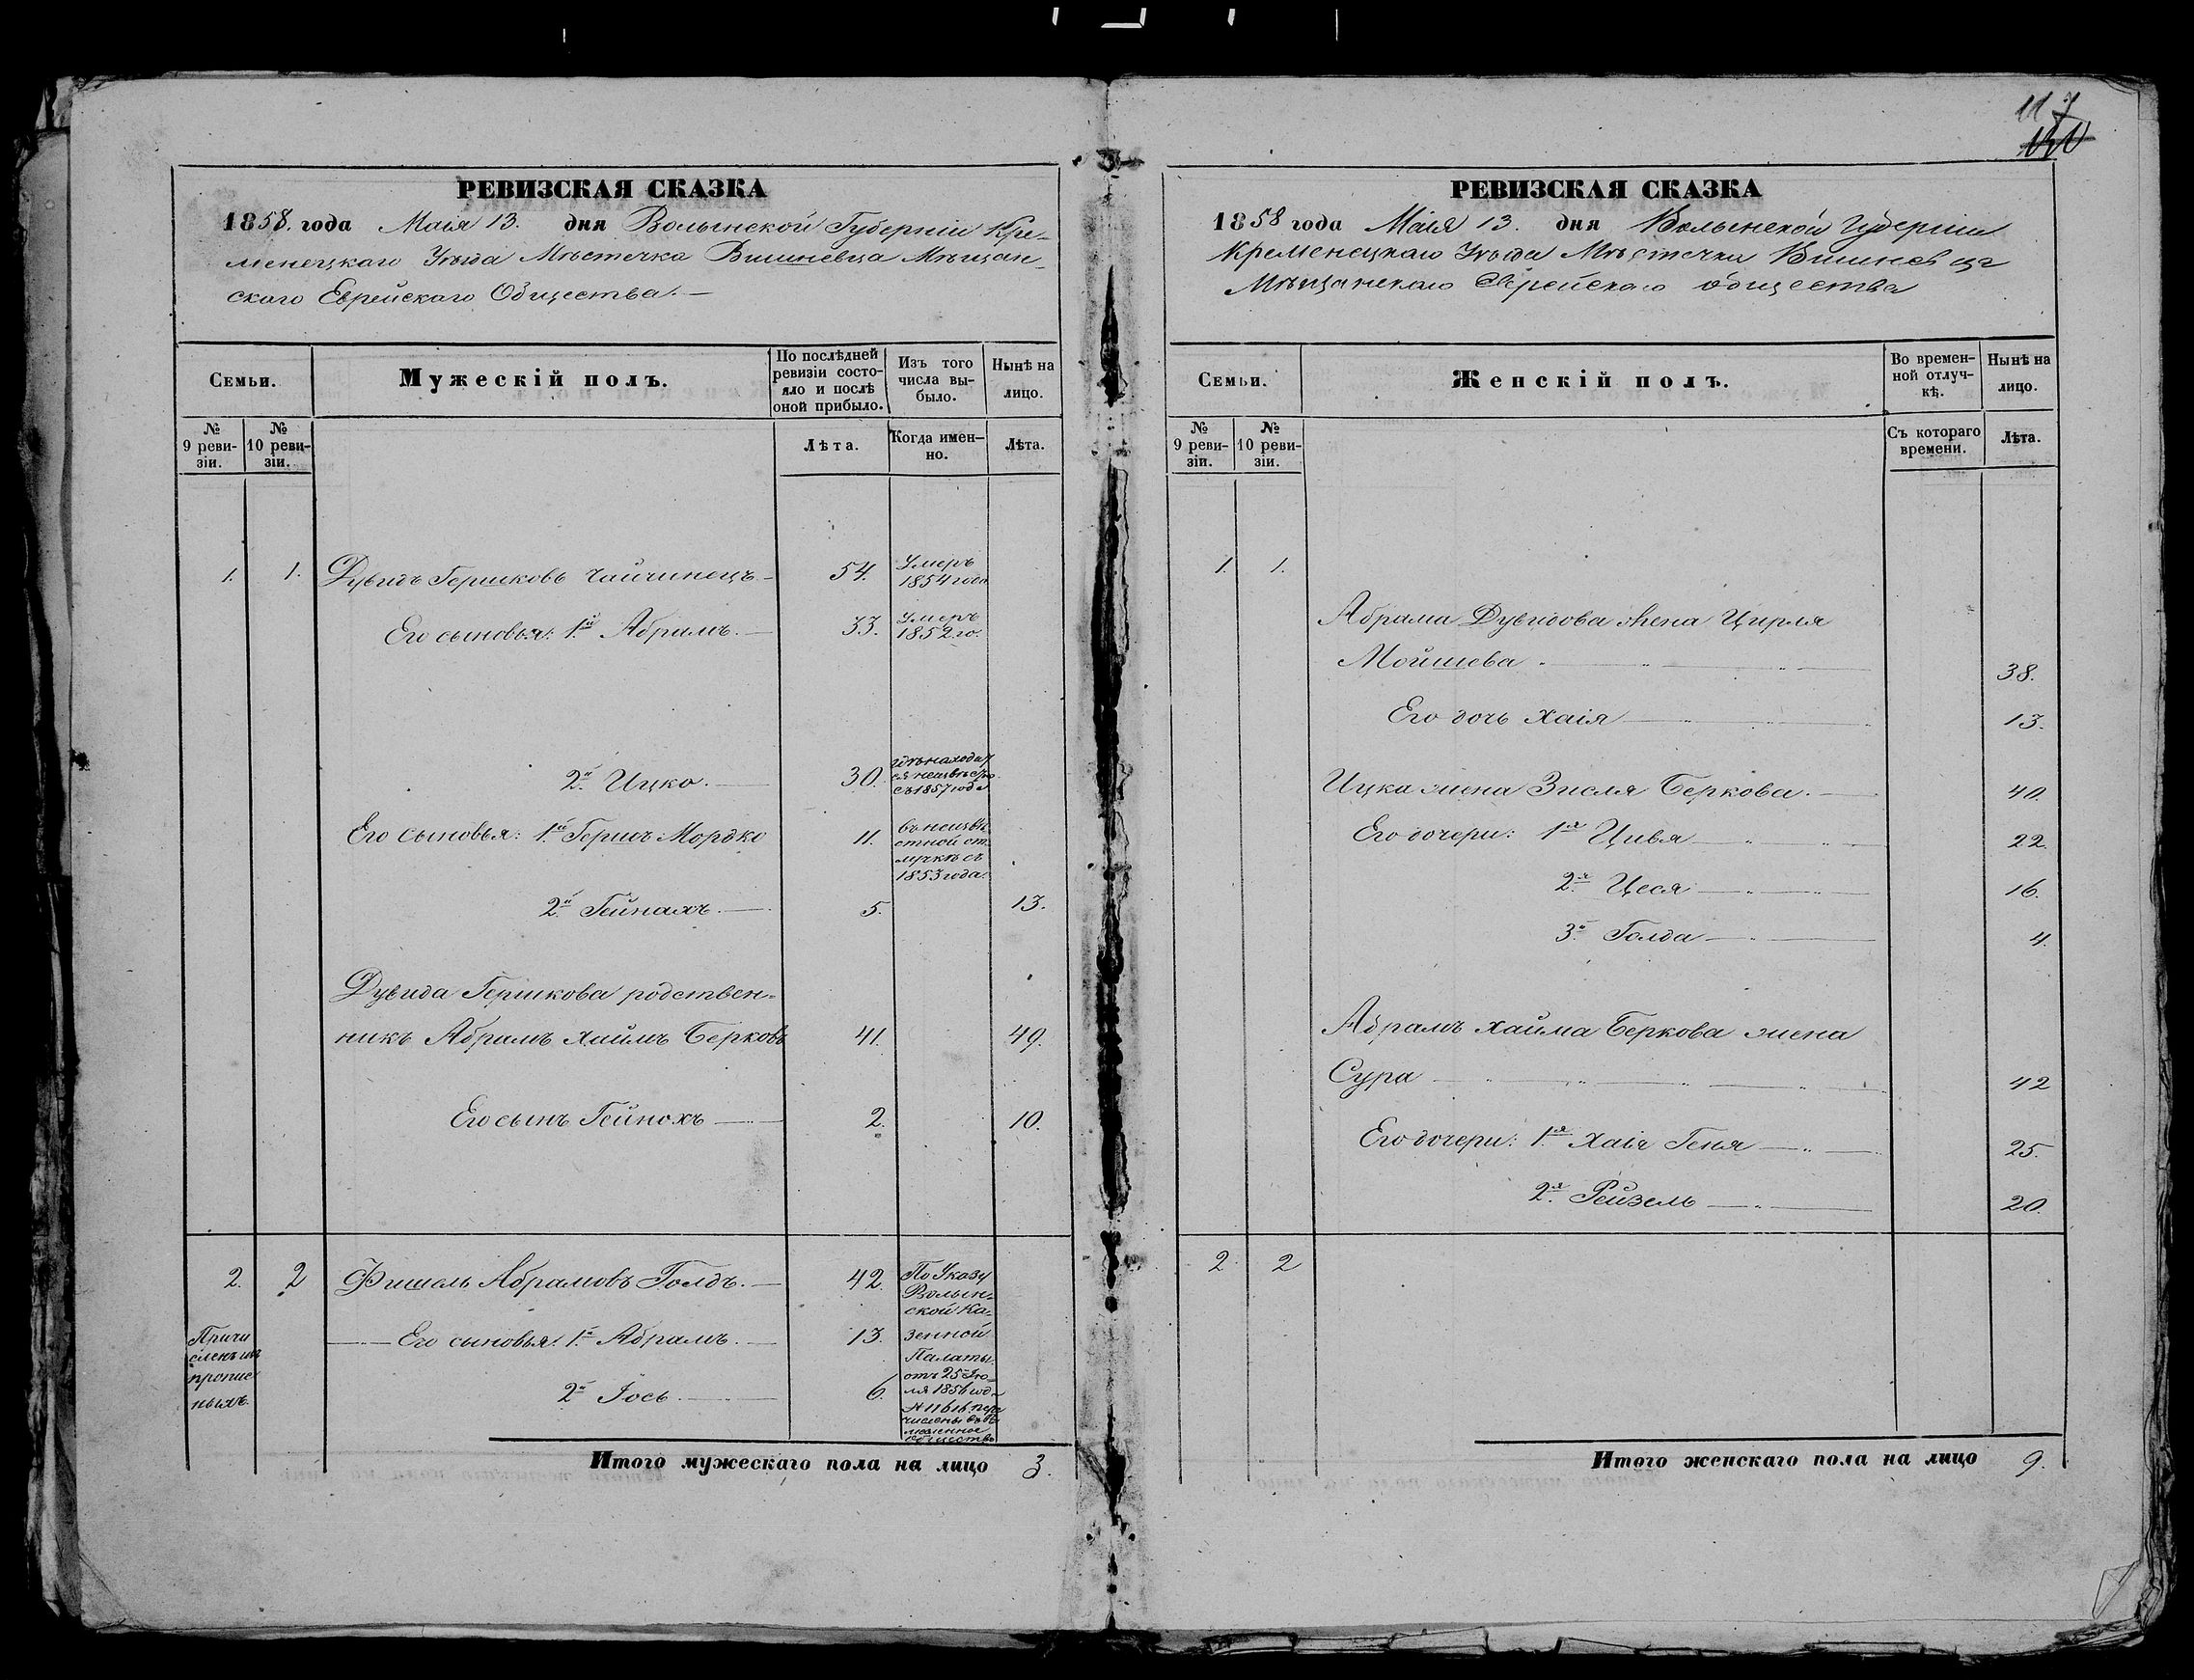 117
РЕВИЗСКАЯ СКАЗКА
1858. года Маія 13. дня Волынской Губерніи Кре-
менецкаго Уѣзда Мѣстечка Вишневца Мѣщан-
скаго Еврейскаго Общества.
Семьи.
Мужескій полъ.
По послѣдней ревизіи состо-
яло и послѣ оной прибыло.
Изъ того числа вы-
было.
Нынѣ на лицо.
№ 9 реви-
зіи.
№ 10 реви-
зіи.
Лѣта.
Когда имен-
но.
Лѣта.
1. 1. Дувидъ Гершковъ Чайчинецъ 54. Умеръ
1854 года
Его сыновья: 1й Абрамъ. 33. Умеръ
1852 го.
2й Ицко. 30. гдѣ находит
ся неизвѣстно
съ 1857 года
Его сыновья: 1й Гершъ Мордко 11. въ неизвѣ-
стной от-
лучкѣ съ
1853 года.
2й Гейнахъ. 5. 13.
Дувида Гершкова родствен-
никъ Абрамъ Хаимъ Берковъ 41. 49.
Его сынъ Гейнохъ 2. 10.
2. 2 Фишель Абрамовъ Голдъ. 42. По Указу
Волын-
ской Ка-
Причи
сленъ изъ
пропис
ныхъ.
Его сыновья: 1й Абрамъ. 13. зенной
Палаты
отъ 25 Ію-
2й Іось 6. ля 1856 год
№ 11616 пере
числены въ
Итого мужескаго пола на лицо 3.
РЕВИЗСКАЯ СКАЗКА
1858 года Маія 13. дня Волынской Губерніи
Кременецкаго Уѣзда Мѣстечка Вишневца
Мѣщанскаго Еврейскаго общества
Семьи.
Женскій полъ.
Во времен-
ной отлуч-
кѣ.
Нынѣ на лицо.
№ 9 реви-
зіи.
№ 10 реви-
зіи.
Съ котораго времени.
Лѣта.
1. 1.
Абрама Дувидова жена Цирля
Мойшева 38.
Его дочь Хаія 13.
Ицка жена Зисля Беркова. 40.
Его дочери: 1я Цивя 22.
2я Цеся 16.
3я Голда 4.
Абрамъ Хаима Беркова жена
Сура 42
Его дочери: 1я Хаія Геня 25.
2я Рейзель 20.
2. 2
Итого женскаго пола на лицо 9.